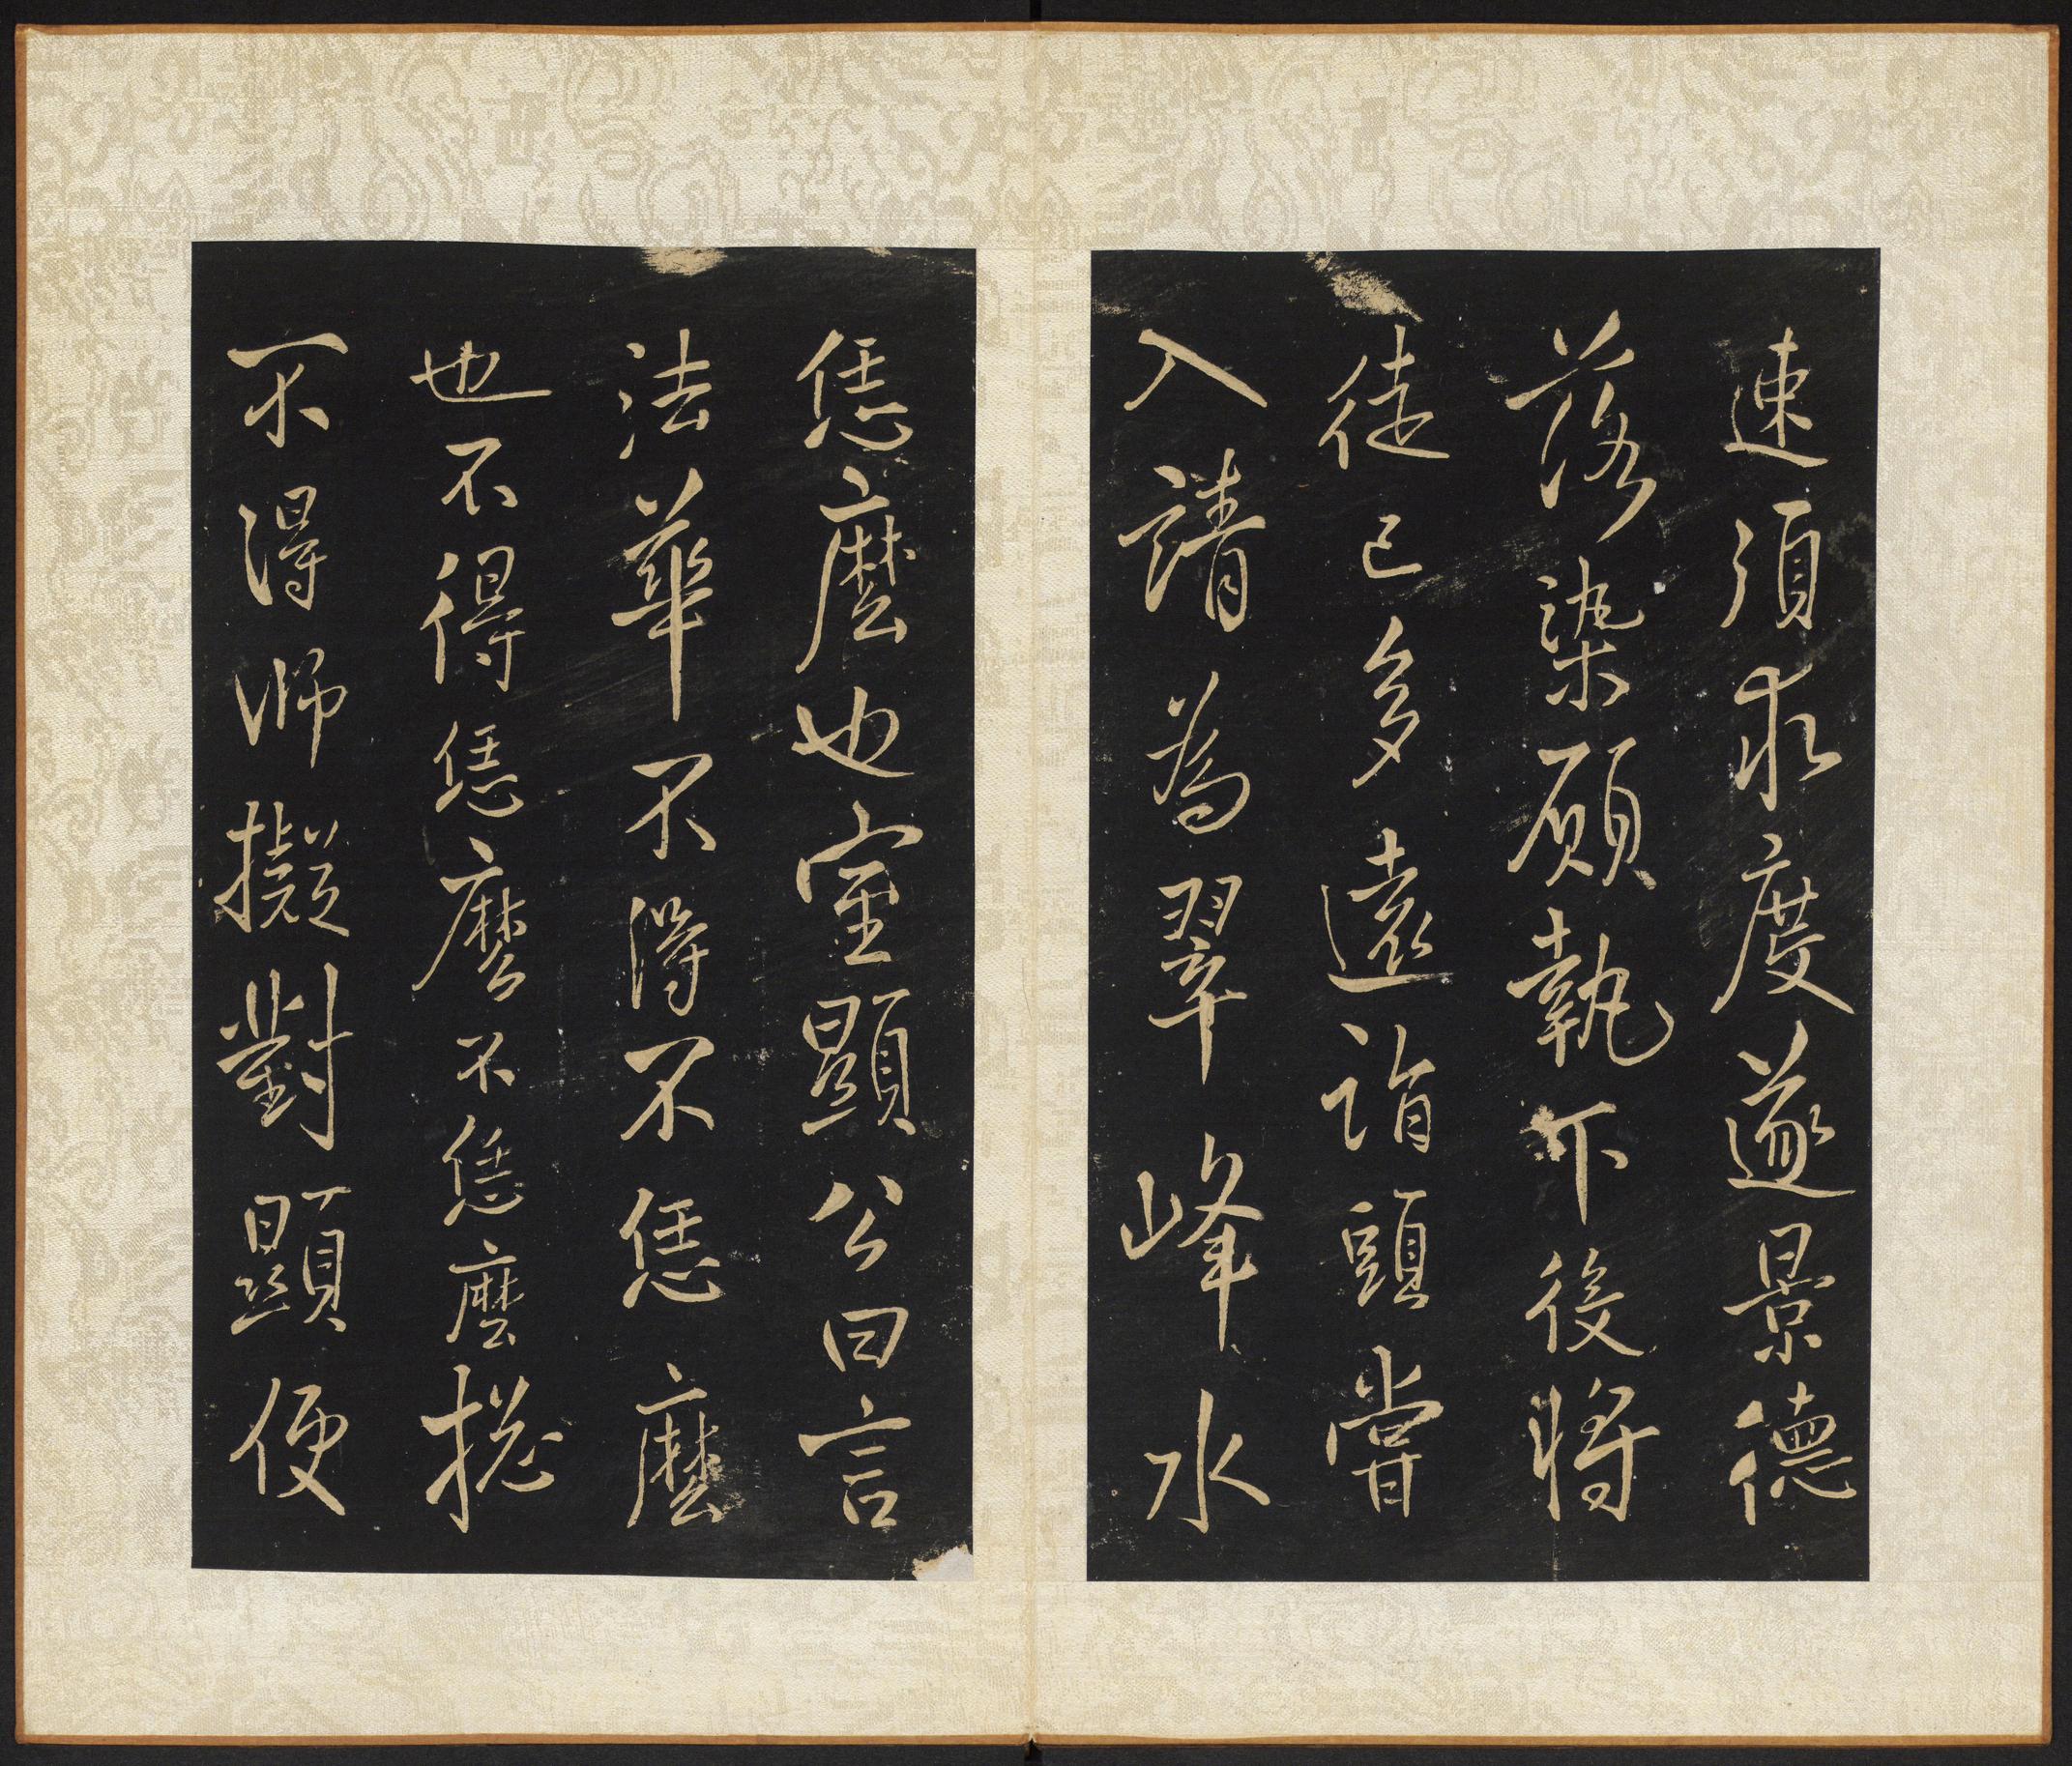 速須求度遂景德
落染願執下後將
徒已多遠詣頭嘗
入請為翠峰水
恁麼也室顯公曰言
法華不得不恁麼
也不得恁麼不恁麼揔
不得師擬對顯便